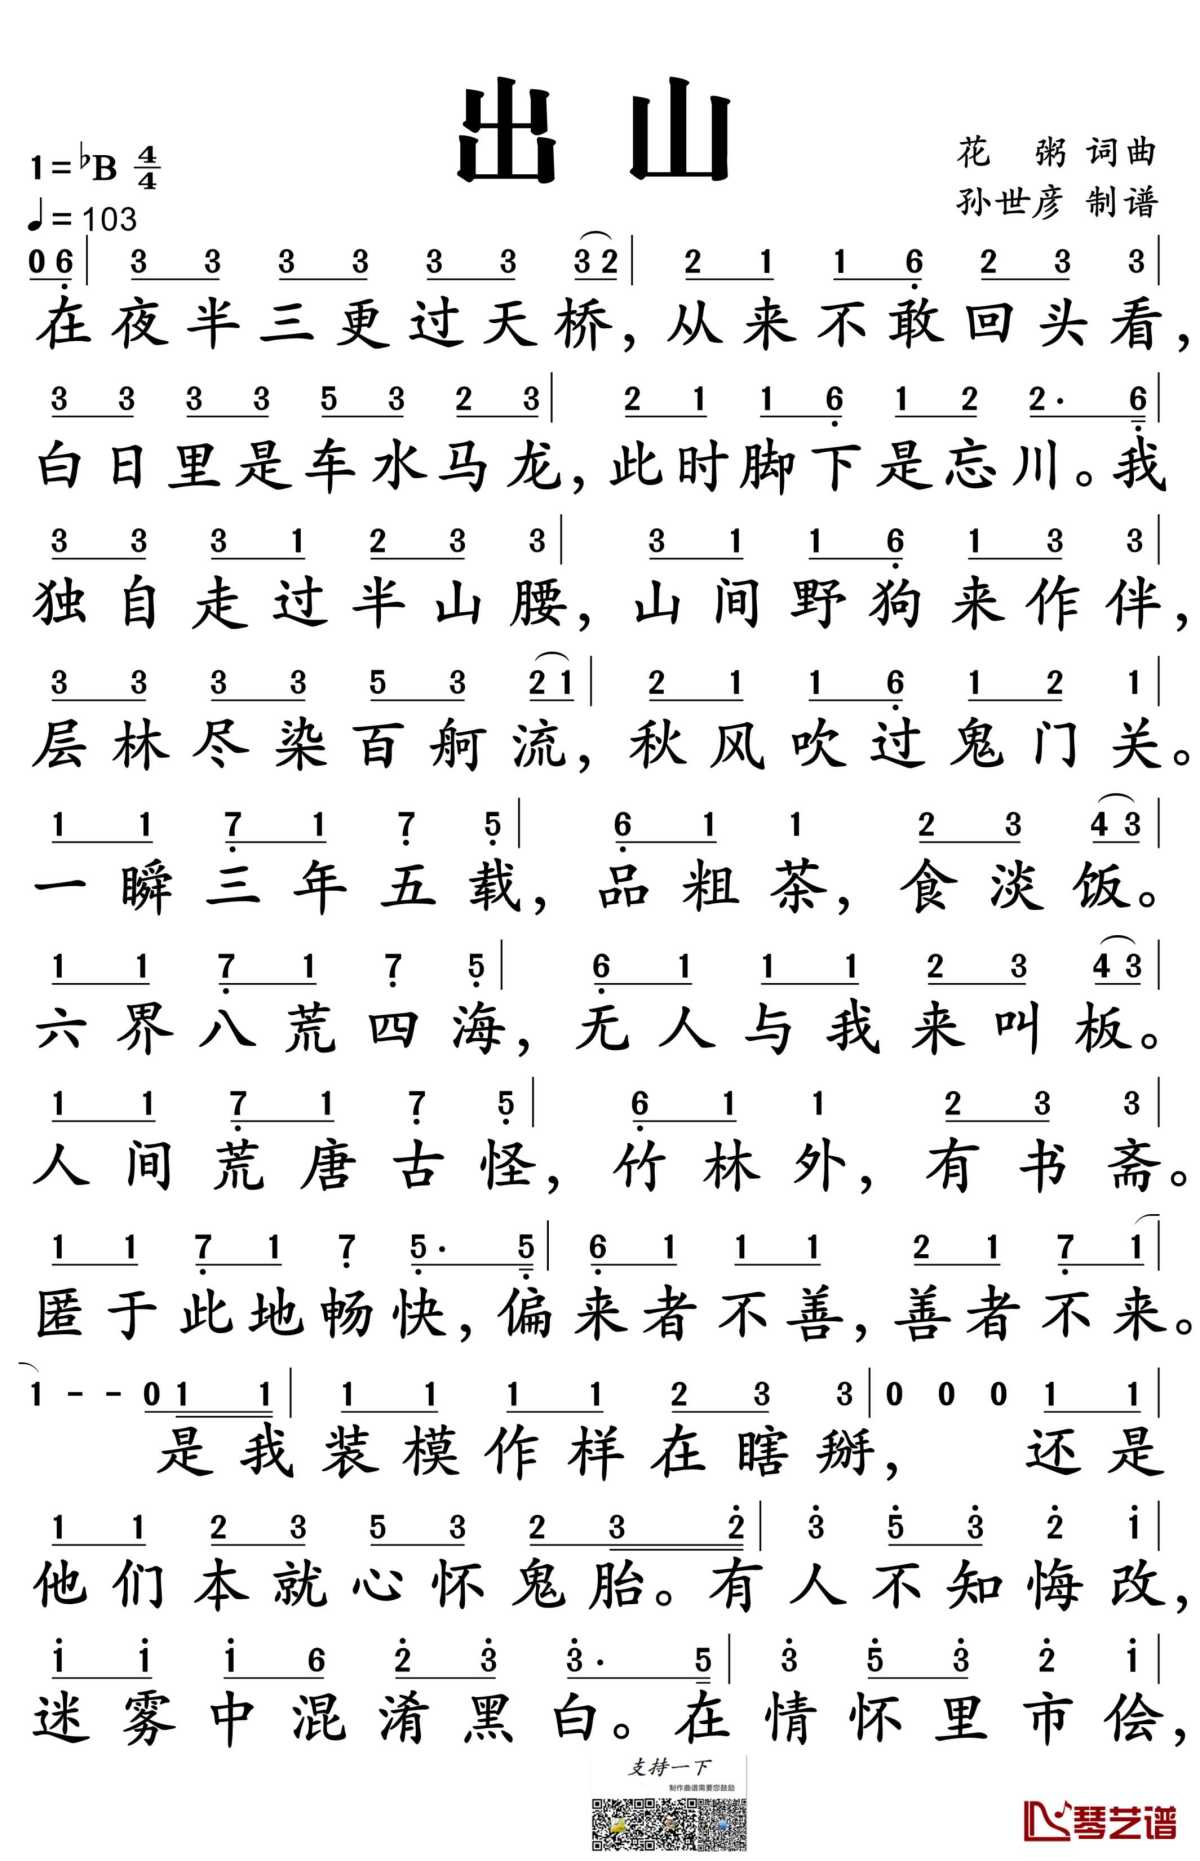 出山
1=♭B 4/4
花 粥 词曲
♩=103
孙世彦 制谱
0 6 | 3 3 3 3 3 3 3 2 | 2 1 1 6 2 3 3 |
在夜半三更过天桥，从来不敢回头看，
3 3 3 3 5 3 2 3 | 2 1 1 6 1 2 2· 6 |
白日里是车水马龙，此时脚下是忘川。我
3 3 3 1 2 3 3 | 3 1 1 6 1 3 3 |
独自走过半山腰，山间野狗来作伴，
3 3 3 3 5 3 2 1 | 2 1 1 6 1 2 1 |
层林尽染百舸流，秋风吹过鬼门关。
1 1 7 1 7 5 | 6 1 1 2 3 4 3 |
一瞬三年五载，品粗茶，食淡饭。
1 1 7 1 7 5 | 6 1 1 1 2 3 4 3 |
六界八荒四海，无人与我来叫板。
1 1 7 1 7 5 | 6 1 1 2 3 3 |
人间荒唐古怪，竹林外，有书斋。
1 1 7 1 7 5· 5 | 6 1 1 1 2 1 7 1 |
匿于此地畅快，偏来者不善，善者不来。
1 - - 0 1 1 | 1 1 1 1 2 3 3 | 0 0 0 1 1 |
是我装模作样在瞎掰，还是
1 1 2 3 5 3 2 3 2 | 3 5 3 2 1 |
他们本就心怀鬼胎。有人不知悔改，
1 1 1 6 2 3 3· 5 | 3 5 3 2 1 |
迷雾中混淆黑白。在情怀里市侩，
支持一下
制作曲谱需要您鼓励
琴艺谱